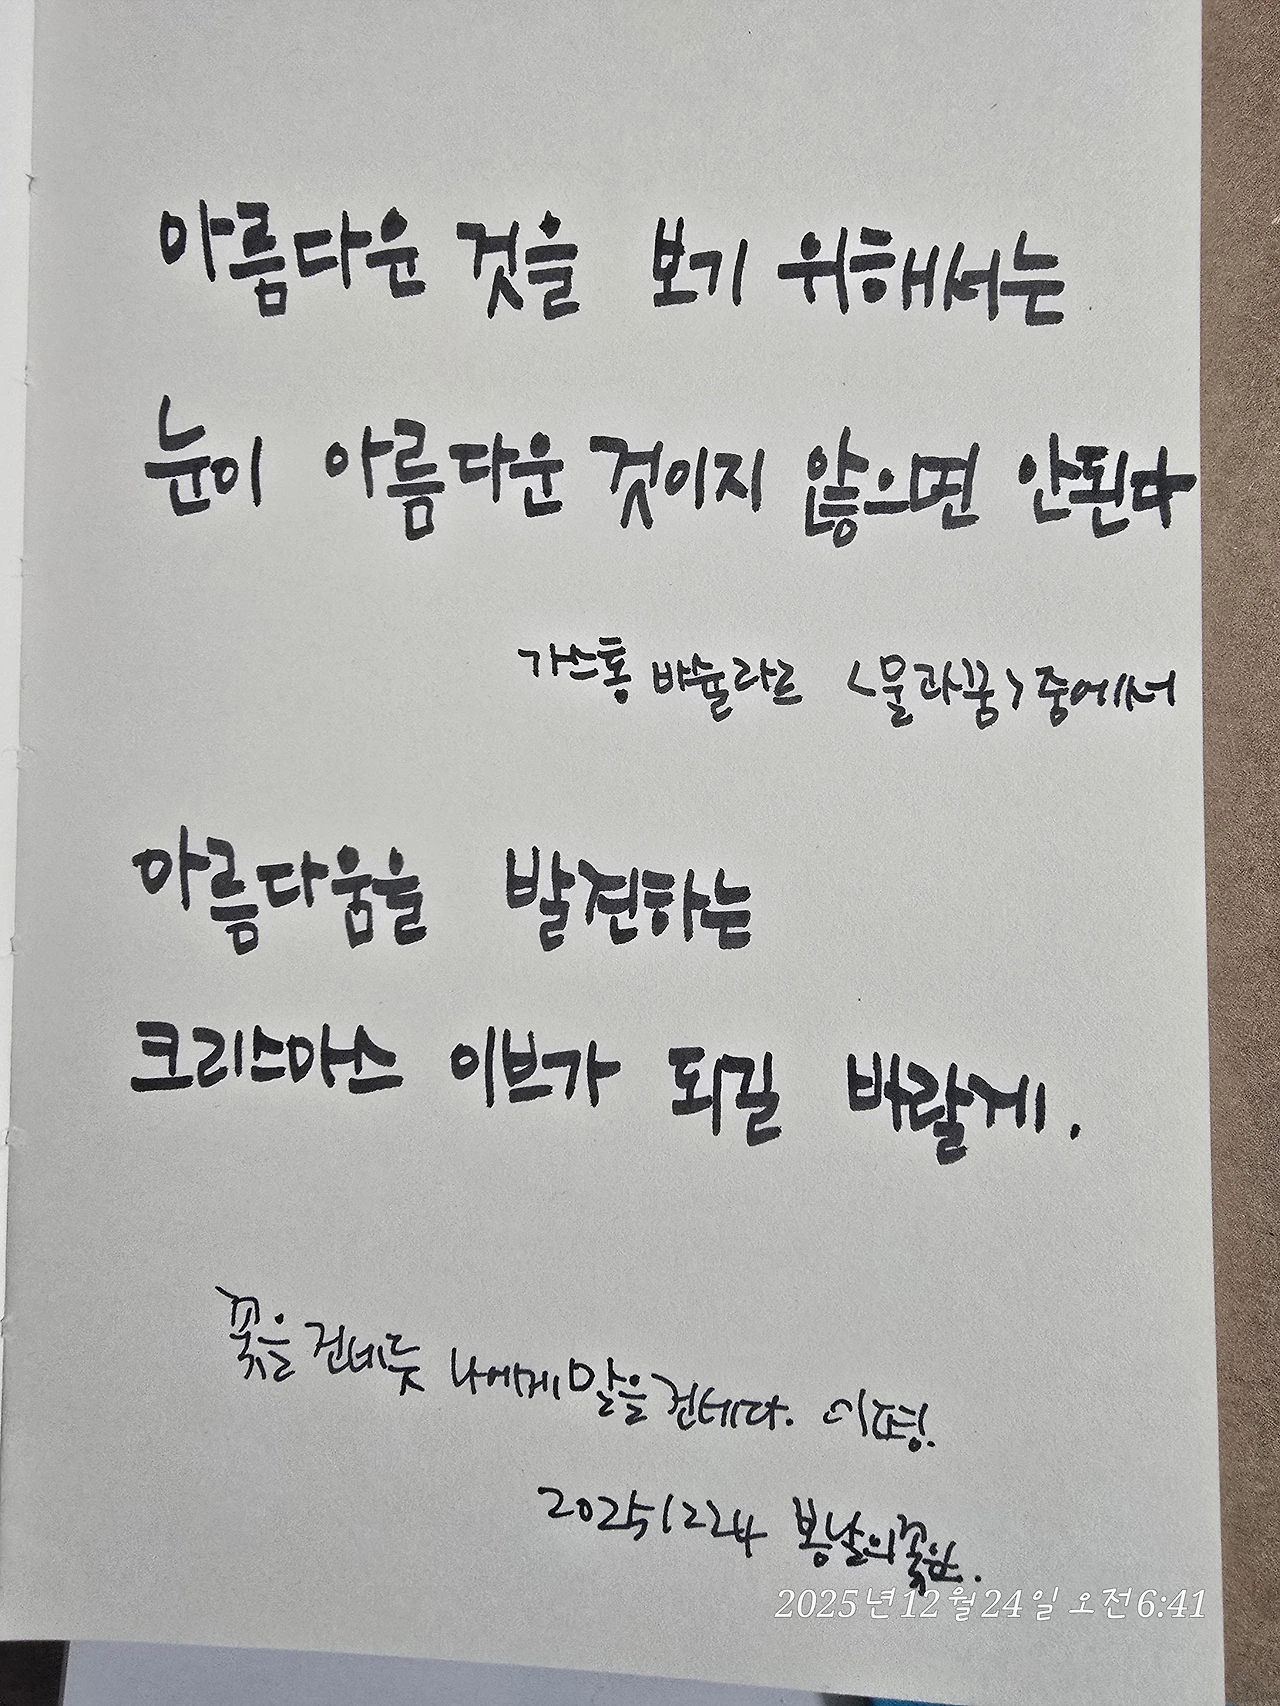 아름다운 것을 보기 위해서는
눈이 아름다운 것이지 않으면 안된다
가스통 바슐라르 <물과꿈> 중에서
아름다움을 발견하는
크리스마스 이브가 되길 바랄게.
꽃을 건네듯 나에게 말을 건네다.
20251224 봄날의꽃
2025년 12월 24일 오전 6:41